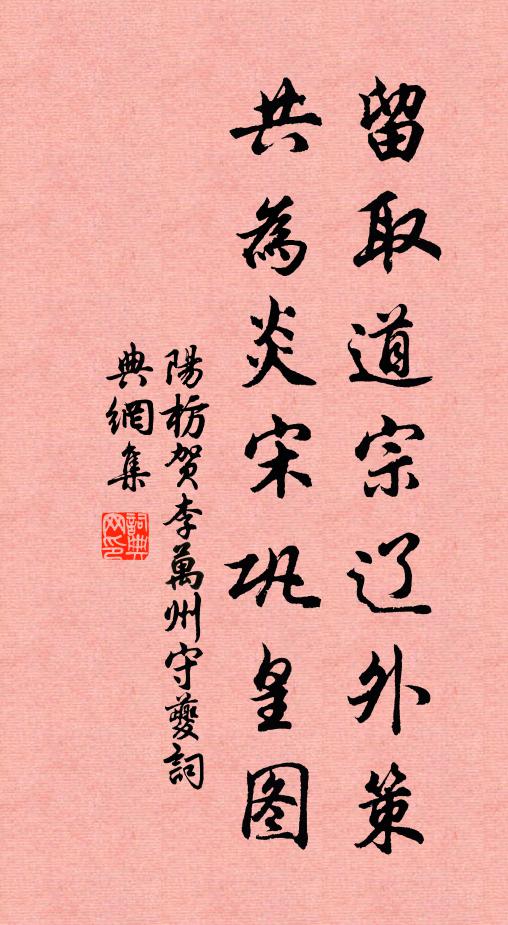 留取道宗辽外策
共為炎宋巩皇图
陽枋賀李萬州守夔詞
典網集
詞典網印